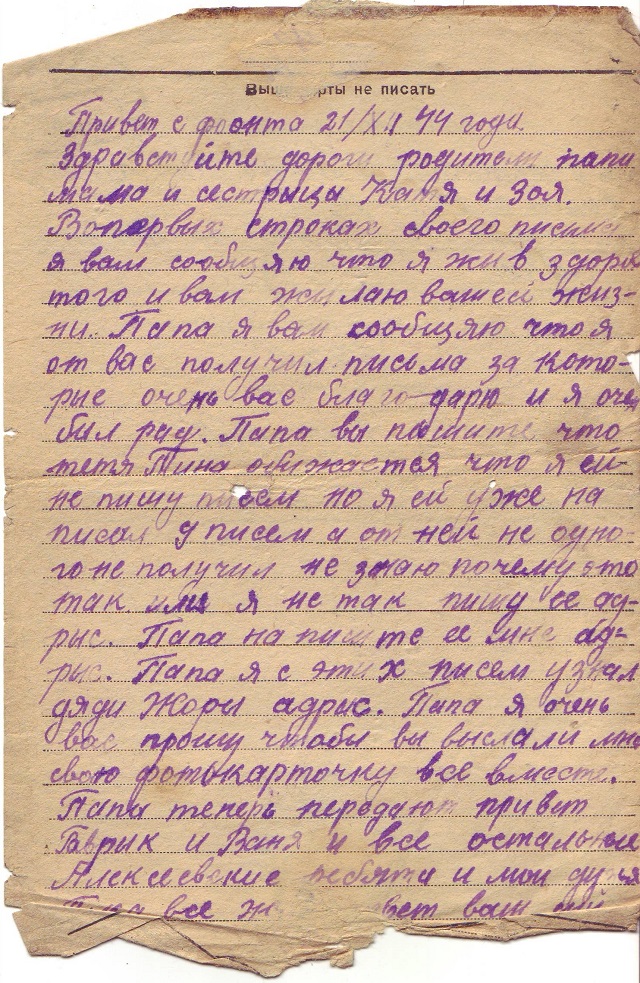 Выше черты не писать
Привет с фронта 21/XII 44 года.
Здравствуйте дороги родители папа
мама и сестрыцы Катя и Зоя.
Вопервых строках своего письма
я вам сообщяю что я жив здоров
того и вам жилаю вашей жиз-
ни. Папа я вам сообщяю что я
от вас получил письма за кото-
рые очень вас благодарю и я очен
бил рад. Папа вы пишите что
тетя Тина обижается что я ей
не пишу писем но я ей уже на
писал 9 писем а от ней не одно-
го не получил не знаю почему это
так или я не так пишу ее ад-
рис. Папа напишите ее мне ад-
рис. Папа я с этих писем узнал
дяди Жоры адрис. Папа я очень
вас прошу чтобы вы выслали мне
свою фотокарточку все вместе.
Папа теперь передают привет
Гаврык и Ваня и все остальные
Алексеевские ребята и мои друзя
все вам